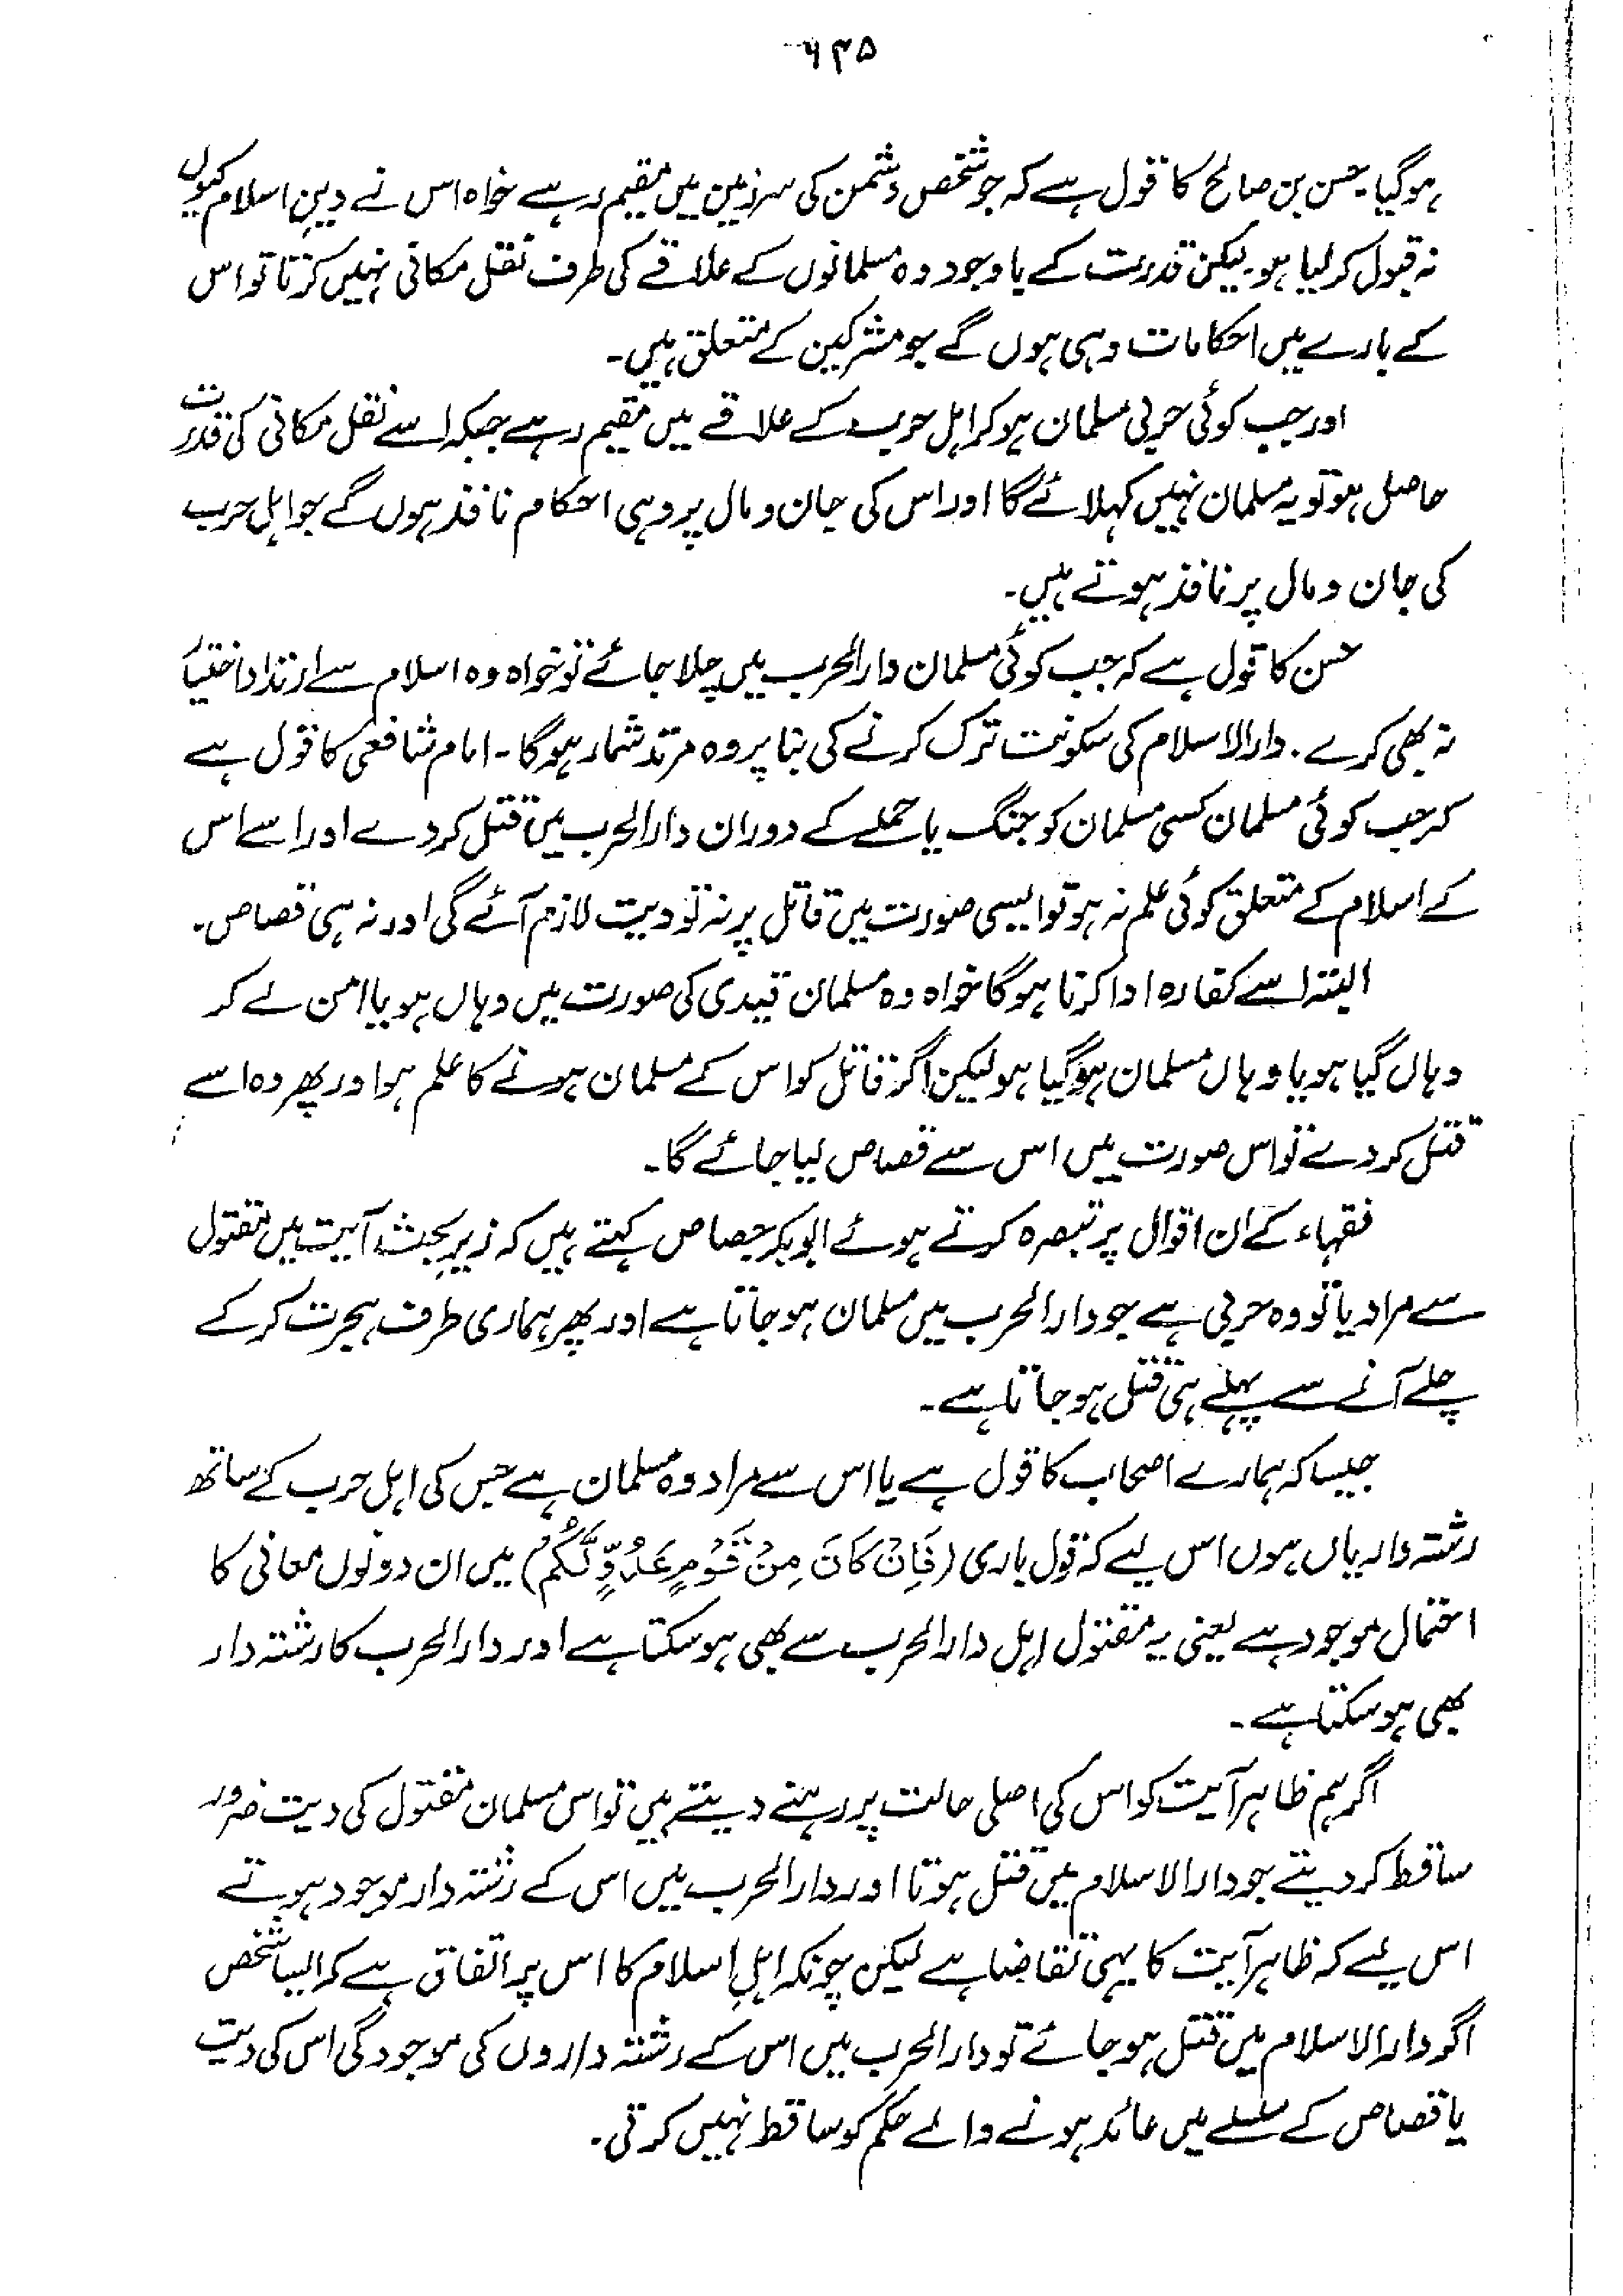 ۶۳۵
ہوگیا۔ حسن بن صالح کا قول ہے کہ جو شخص دشمن کی سرزمین میں مقیم رہے خواہ اس نے دینِ اسلام کیوں
نہ قبول کرلیا ہو۔ لیکن قدرت کے باوجود وہ مسلمانوں کے علاقے کی طرف نقل مکانی نہیں کرتا تو اس
کے بارے میں احکامات وہی ہوں گے جو مشرکین کے متعلق ہیں۔
اور جب کوئی حربی مسلمان ہوکر اہل حرب کے علاقے میں مقیم رہے جبکہ اسے نقل مکانی کی قدرت
حاصل ہو تو یہ مسلمان نہیں کہلائے گا اور اس کی جان و مال پر وہی احکام نافذ ہوں گے جو اہل حرب
کی جان و مال پر نافذ ہوتے ہیں۔
حسن کا قول ہے کہ جب کوئی مسلمان دارالحرب میں چلا جائے تو خواہ وہ اسلام سے ارتداد اختیار
نہ بھی کرے۔ دارالاسلام کی سکونت ترک کرنے کی بنا پر وہ مرتد شمار ہوگا۔ امام شافعی کا قول ہے
کہ جب کوئی مسلمان کسی مسلمان کو جنگ یا حملے کے دوران دارالحرب میں قتل کردے اور اسے اس
کے اسلام کے متعلق کوئی علم نہ ہو تو ایسی صورت میں قاتل پر نہ تو دیت لازم آئے گی اور نہ ہی قصاص۔
البتہ اسے کفارہ ادا کرنا ہوگا خواہ وہ مسلمان قیدی کی صورت میں وہاں ہو یا امن لے کر
وہاں گیا ہو یا وہاں مسلمان ہوگیا ہو لیکن اگر قاتل کو اس کے مسلمان ہونے کا علم ہو اور پھر وہ اسے
قتل کردے تو اس صورت میں اس سے قصاص لیا جائے گا۔
فقہاء کے ان اقوال پر تبصرہ کرتے ہوئے ابوبکر جصاص کہتے ہیں کہ زیرِ بحث آیت میں مقتول
سے مراد یا تو وہ حربی ہے جو دارالحرب میں مسلمان ہوجاتا ہے اور پھر ہماری طرف ہجرت کرکے
چلے آنے سے پہلے ہی قتل ہوجاتا ہے۔
جیسا کہ ہمارے اصحاب کا قول ہے یا اس سے مراد وہ مسلمان ہے جس کی اہل حرب کے ساتھ
رشتہ داریاں ہوں اس لیے کہ قول باری (فَاِنْ كَانَ مِنْ قَوْمٍ عَدُوٍّ لَّكُمْ) میں ان دونوں معانی کا
احتمال موجود ہے یعنی یہ مقتول اہل دارالحرب سے بھی ہوسکتا ہے اور دارالحرب کا رشتہ دار
بھی ہوسکتا ہے۔
اگر ہم ظاہر آیت کو اس کی اصلی حالت پر رہنے دیتے ہیں تو اس مسلمان مقتول کی دیت ضرور
ساقط کردیتے جو دارالاسلام میں قتل ہوتا اور دارالحرب میں اس کے رشتہ دار موجود ہوتے
اس لیے کہ ظاہر آیت کا یہی تقاضا ہے لیکن چونکہ اہلِ اسلام کا اس پر اتفاق ہے کہ ایسا شخص
اگر دارالاسلام میں قتل ہوجائے تو دارالحرب میں اس کے رشتہ داروں کی موجودگی اس کی دیت
یا قصاص کے سلسلے میں عائد ہونے والے حکم کو ساقط نہیں کرتی۔